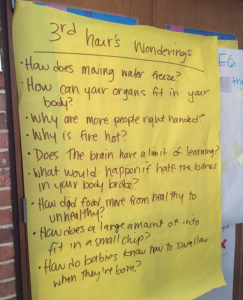 3rd hour's Wonderings
• How does moving water freeze?
• How can your organs fit in your
body?
• Why are more people right handed?
• Why is fire hot?
• Does The brain have a limit of learning?
• What would happen if half the bones
in your body broke?
• How did food move from healthy to
unhealthy?
• How does a large amount of info
fit in a small chip?
• How do babies know how to swallow
when they're born?